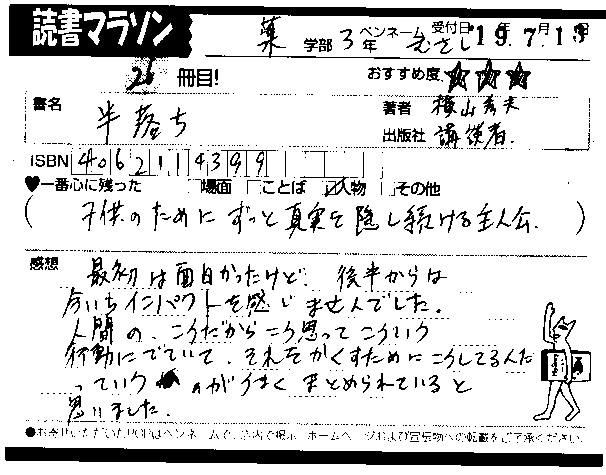 読書マラソン
薬 学部 3年 ペンネーム むさし 受付日 19年7月13日
26冊目! おすすめ度 ★★★
書名 半落ち
著者 横山秀夫
出版社 講談社
ISBN 4062114399
♥一番心に残った □場面 □ことば ☑人物 □その他
(子供のためにずっと真実を隠し続ける主人公.)
感想 最初は面白かったけど、後半からは
今いちインパクトを感じませんでした。
人間の、こうだからこう思ってこういう
行動にでていて、それをかくすためにこうしてるんだ
っていうのがうまくまとめられていると
思いました。
●お寄せいただいたPOPはペンネームで、店内で掲示・ホームページおよび宣伝物への転載をご了承ください。